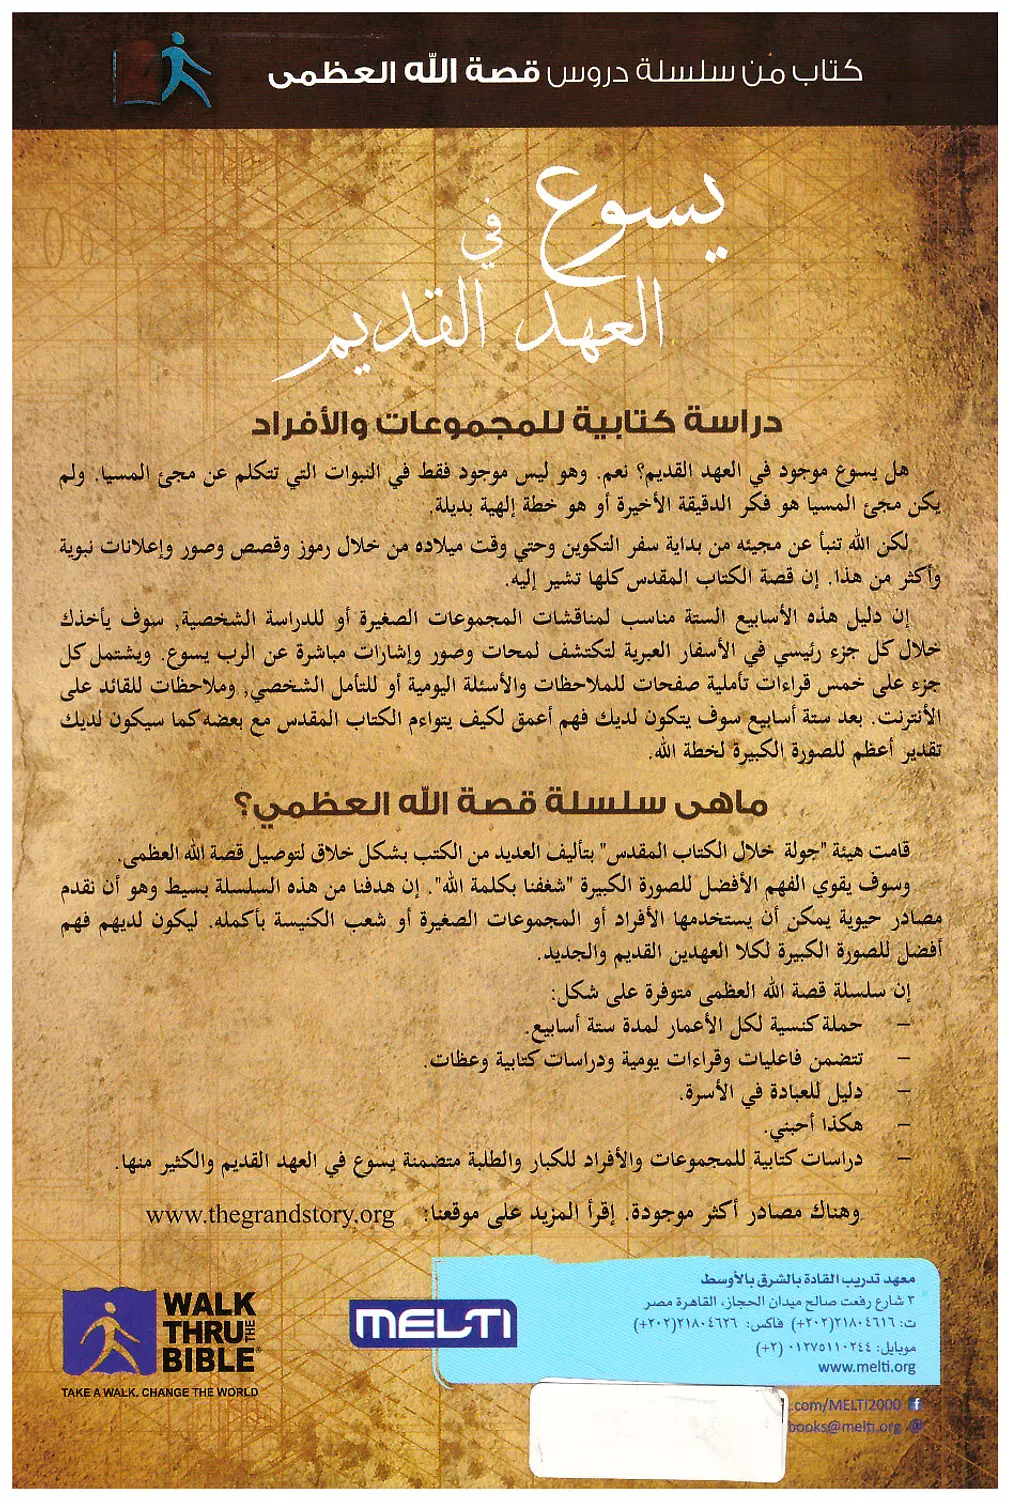 كتاب من سلسلة دروس قصة الله العظمى
يسوع في
العهد القديم
دراسة كتابية للمجموعات والأفراد
هل يسوع موجود في العهد القديم؟ نعم. وهو ليس موجود فقط في النبوات التي تتكلم عن مجئ المسيا. ولم
يكن مجئ المسيا هو فكر الدقيقة الأخيرة أو هو خطة إلهية بديلة.
لكن الله تنبأ عن مجيئه من بداية سفر التكوين وحتي وقت ميلاده من خلال رموز وقصص وصور وإعلانات نبوية
وأكثر من هذا. إن قصة الكتاب المقدس كلها تشير إليه.
إن دليل هذه الأسابيع الستة مناسب لمناقشات المجموعات الصغيرة أو للدراسة الشخصية, سوف يأخذك
خلال كل جزء رئيسي في الأسفار العبرية لتكتشف لمحات وصور وإشارات مباشرة عن الرب يسوع. ويشتمل كل
جزء على خمس قراءات تأملية صفحات للملاحظات والأسئلة اليومية أو للتأمل الشخصي, وملاحظات للقائد على
الأنترنت. بعد ستة أسابيع سوف يتكون لديك فهم أعمق لكيف يتواءم الكتاب المقدس مع بعضه كما سيكون لديك
تقدير أعظم للصورة الكبيرة لخطة الله.
ماهى سلسلة قصة الله العظمي؟
قامت هيئة "جولة خلال الكتاب المقدس" بتأليف العديد من الكتب بشكل خلاق لتوصيل قصة الله العظمى.
وسوف يقوي الفهم الأفضل للصورة الكبيرة "شغفنا بكلمة الله". إن هدفنا من هذه السلسلة بسيط وهو أن نقدم
مصادر حيوية يمكن أن يستخدمها الأفراد أو المجموعات الصغيرة أو شعب الكنيسة بأكمله. ليكون لديهم فهم
أفضل للصورة الكبيرة لكلا العهدين القديم والجديد.
إن سلسلة قصة الله العظمى متوفرة على شكل:
– حملة كنسية لكل الأعمار لمدة ستة أسابيع.
– تتضمن فاعليات وقراءات يومية ودراسات كتابية وعظات.
– دليل للعبادة في الأسرة.
– هكذا أحبني.
– دراسات كتابية للمجموعات والأفراد للكبار والطلبة متضمنة يسوع في العهد القديم والكثير منها.
وهناك مصادر أكثر موجودة. إقرأ المزيد على موقعنا: www.thegrandstory.org
معهد تدريب القادة بالشرق بالأوسط
٣ شارع رفعت صالح ميدان الحجاز، القاهرة مصر
ت: ٢١٨٠٤٦١٦(٢٠٢+) فاكس: ٢١٨٠٤٦٢٦(٢٠٢+)
موبايل: ٠١٢٧٥١١٠٢٤٤ (٢+)
www.melti.org
MELTI
WALK
THRU THE
BIBLE®
TAKE A WALK. CHANGE THE WORLD
.com/MELTI2000
books@melti.org